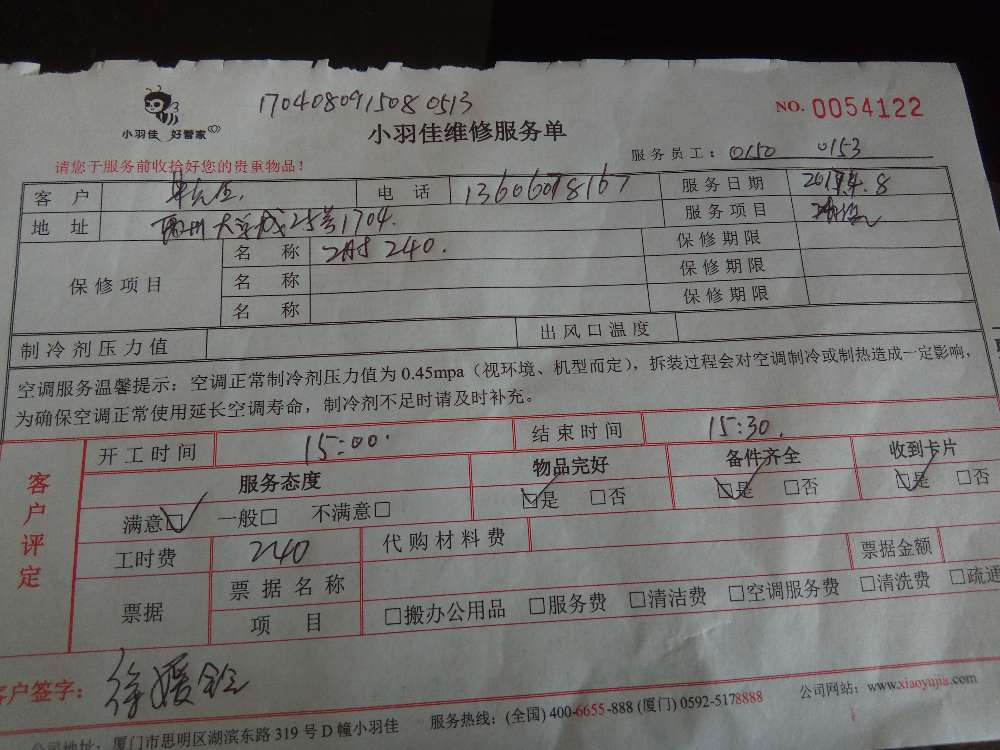 1704080915080513
小羽佳 好管家
NO. 0054122
小羽佳维修服务单
请您于服务前收拾好您的贵重物品！
服务员工：0150 0153
客户 电话 13606078167 服务日期
地址 25号1704. 服务项目
保修项目 名称 240. 保修期限
名称 保修期限
名称 保修期限
制冷剂压力值 出风口温度
空调服务温馨提示：空调正常制冷剂压力值为 0.45mpa（视环境、机型而定），拆装过程会对空调制冷或制热造成一定影响，
为确保空调正常使用延长空调寿命，制冷剂不足时请及时补充。
客户评定
开工时间 15:00. 结束时间 15:30.
服务态度 物品完好 备件齐全 收到卡片
满意□ 一般□ 不满意□ □是 □否 □是 □否 □是 □否
工时费 240 代购材料费
票据 票据名称 票据金额
项目 □搬办公用品 □服务费 □清洁费 □空调服务费 □清洗费 □疏通
客户签字：徐媛铃
公司地址：厦门市思明区湖滨东路 319 号 D 幢小羽佳 服务热线：(全国) 400-6655-888 (厦门) 0592-5178888 公司网站：www.xiaoyujia.com